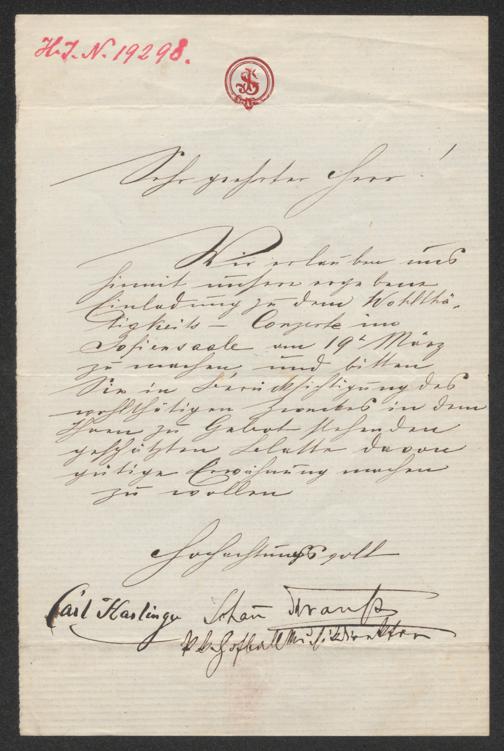 H. I. N. 19298.
JS
Sehr geehrter Herr !
Wir erlauben uns
hiemit unsere ergebene
Einladung zu dem Wohlthä-
tigkeits - Conzerte im
Sofiensaale am 19t März
zu machen, und bitten
Sie in Berücksichtigung des
wohlthätigen Zweckes in dem
Ihnen zu Gebot stehenden
geschätzten Blatte davon
gütige Erwähnung machen
zu wollen
Hochachtungsvoll
Carl Haslinger Johann Strauß
k. k. Hofball Musikdirektor